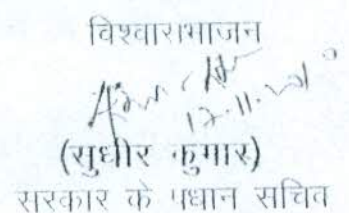 विश्वासभाजन
(सुधीर कुमार)
सरकार के प्रधान सचिव